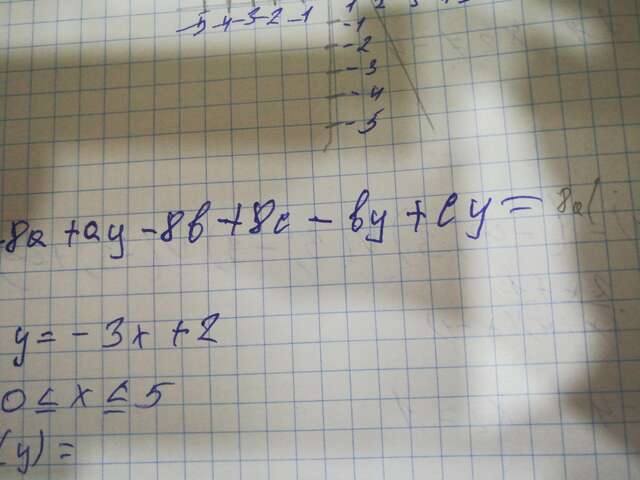 1 2 3
-5 -4 -3 -2 -1
-1
-2
-3
-4
-5
-8a + ay - 8b + 8c - by + cy = 8a(
y = - 3x + 2
0 ≤ x ≤ 5
(y) =